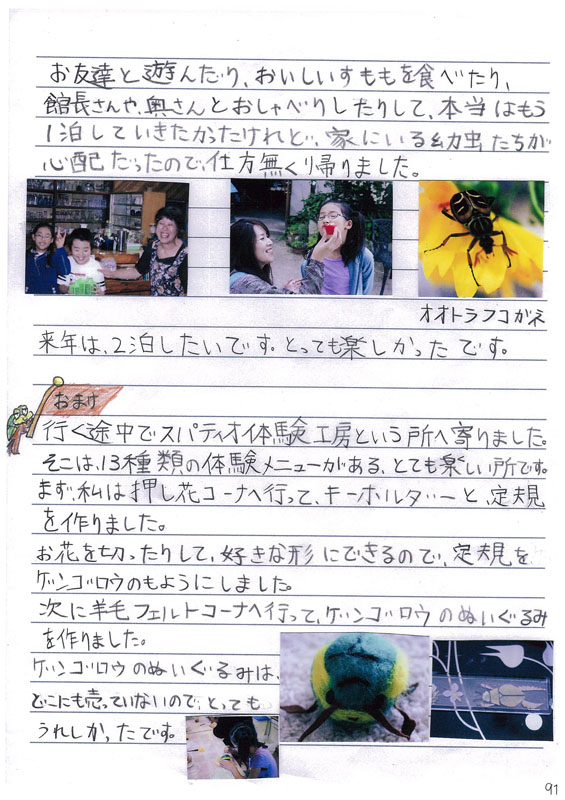 お友達と遊んだり、おいしいすももを食べたり、
館長さんや、奥さんとおしゃべりしたりして、本当はもう
1泊していきたかったけれど、家にいる幼虫たちが
心配だったので、仕方無くり帰りました。
オオトラフコガネ
来年は、2泊したいです。とっても楽しかったです。
おまけ
行く途中でスパティオ体験工房という所へ寄りました。
そこは、13種類の体験メニューがある、とても楽しい所です。
まず、私は押し花コーナへ行って、キーホルダーと、定規
を作りました。
お花を切ったりして、好きな形にできるので、定規を
ゲンゴロウのもようにしました。
次に羊毛フェルトコーナへ行って、ゲンゴロウのぬいぐるみ
を作りました。
ゲンゴロウのぬいぐるみは、
どこにも売っていないので、とっても
うれしかったです。
91